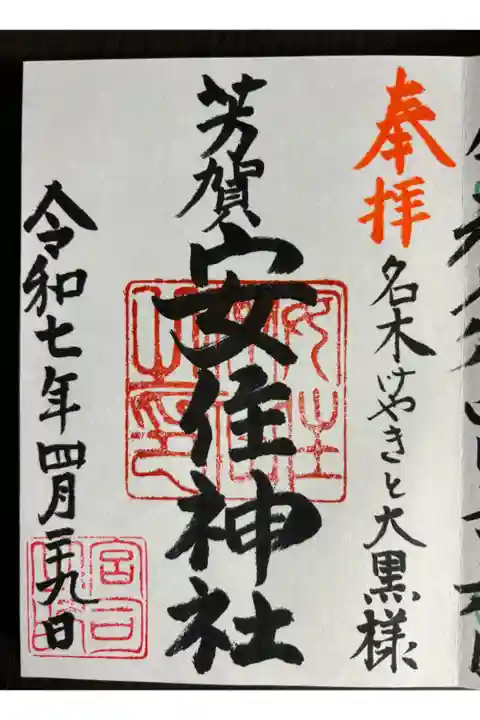 奉拝
名木けやきと大黒様
芳賀
安住神社
令和七年四月二十九日